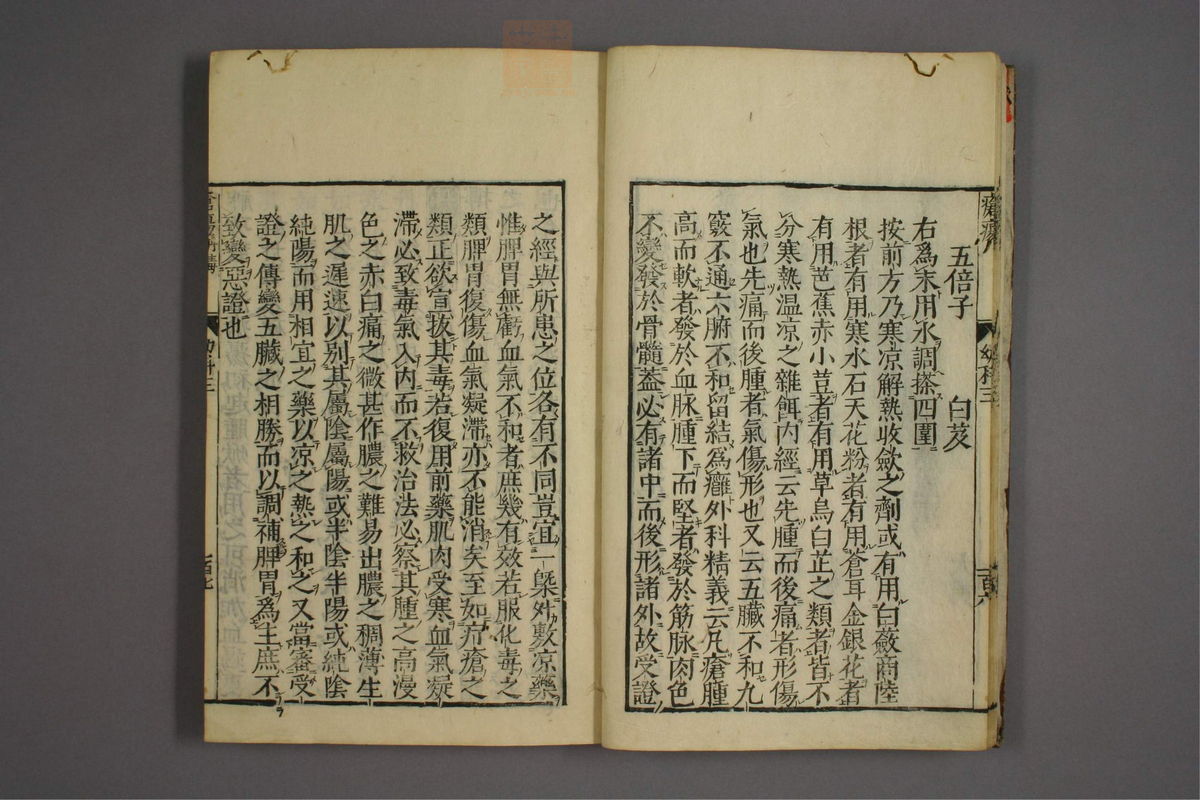 五倍子　白芨
右爲末用水調搽四圍
按前方乃寒凉解熱收歛之劑或有用白蘞商陸
根者有用寒水石天花粉者有用蒼耳金銀花者
有用芭蕉赤小荳者有用草烏白芷之類者皆不
分寒熱温凉之雜餌内經云先腫而後痛者形傷
氣也先痛而後腫者氣傷形也又云五臟不和九
竅不通六腑不和留結爲癰外科精義云凡瘡腫
高而軟者發於血脉腫下而堅者發於筋脉肉色
不變發於骨髓蓋必有諸中而後形諸外故受證
幼科三
百六
之經與所患之位各有不同豈宜一槩外敷凉藥
惟脾胃無虧血氣不和者庶幾有效若服化毒之
類脾胃復傷血氣凝滯亦不能消矣至如疔瘡之
類正欲宣拔其毒若復用前藥肌肉受寒血氣凝
滯必致毒氣入内而不救治法必察其腫之高漫
色之赤白痛之微甚作膿之難易出膿之稠薄生
肌之遲速以别其屬陰屬陽或半陰半陽或純陰
純陽而用相宜之藥以凉之熱之和之又當審受
證之傳變五臟之相勝而以調補脾胃爲主庶不
致變惡證也